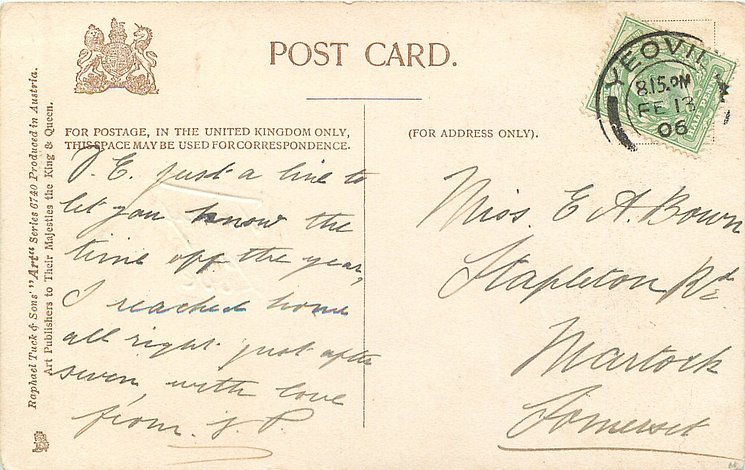 POST CARD.
Raphael Tuck & Sons' "Art" Series 6740 Produced in Austria.
Art Publishers to Their Majesties the King & Queen.
FOR POSTAGE, IN THE UNITED KINGDOM ONLY,
THIS SPACE MAY BE USED FOR CORRESPONDENCE.
(FOR ADDRESS ONLY).
YEOVIL
8.15.PM
FE 13
06
D. E. just a line to
let you know the
time off the year,
I reached home
all right just after
seven, with love
from. J. P
Miss. E A. Bown
Stapleton Rd
Martock
Somerset